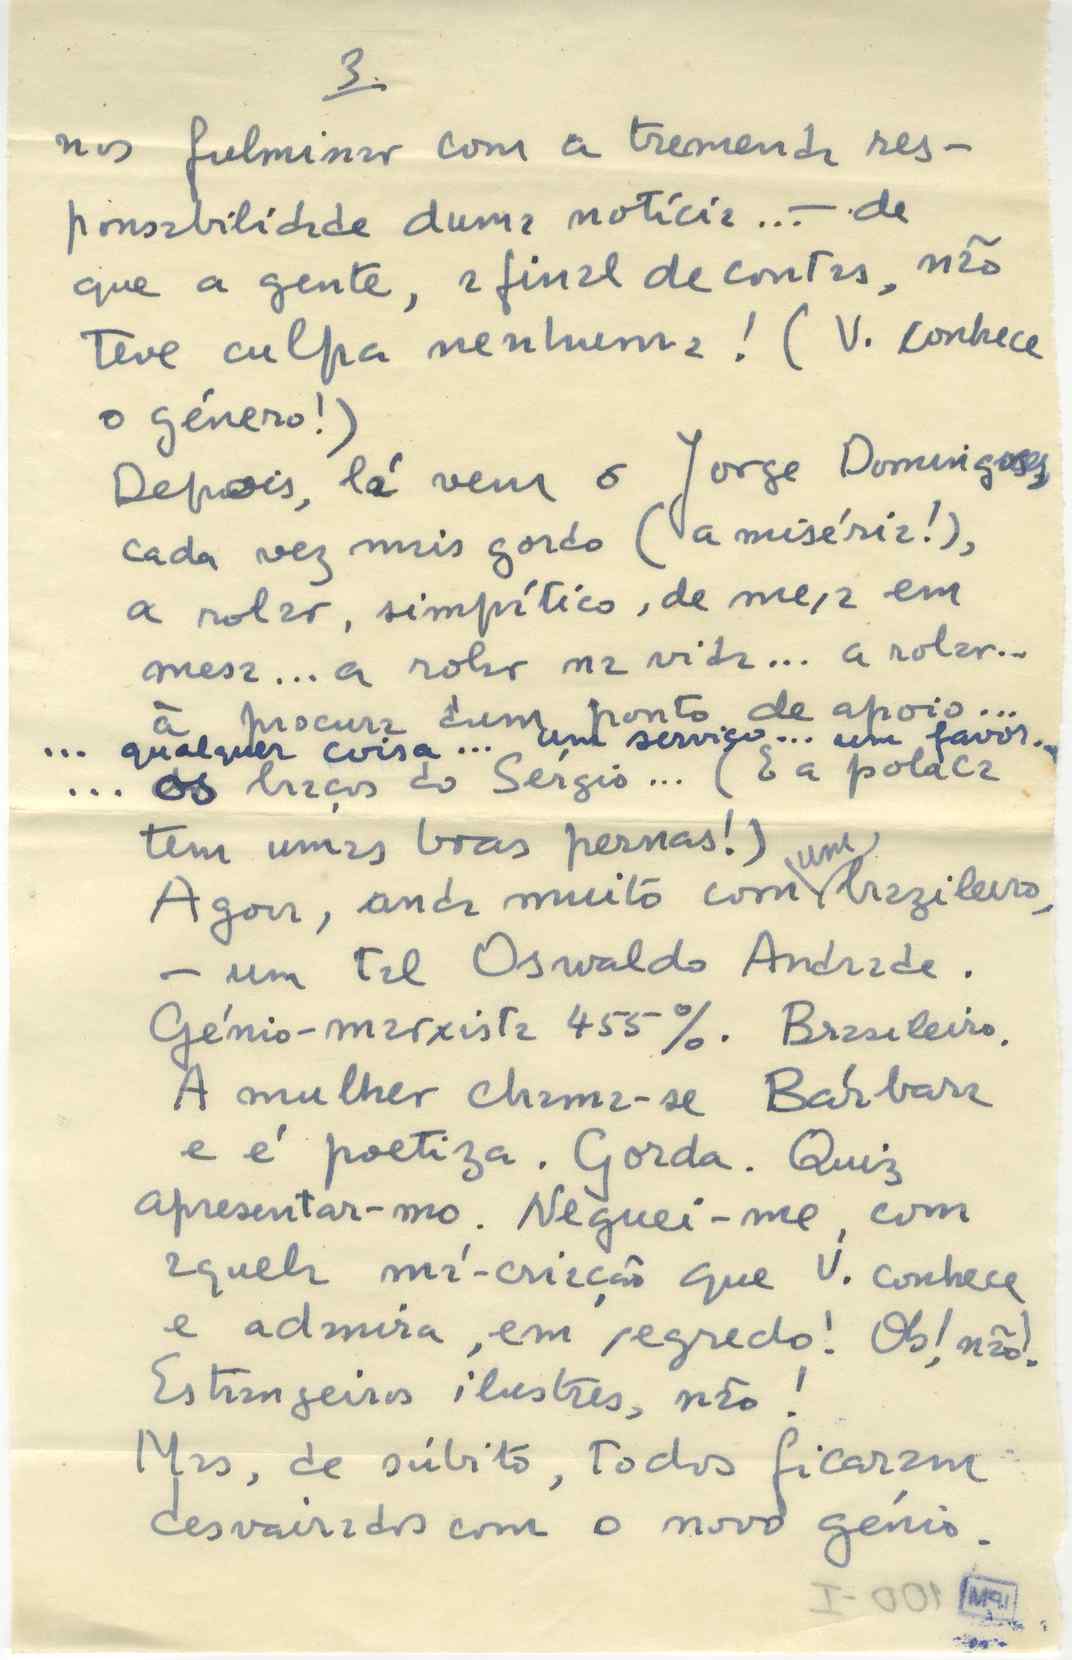 3.
nos fulminar com a tremenda res-
ponsabilidade duma notícia...- de
que a gente, afinal de contas, não
teve culpa nenhuma! (V. conhece
o género!)
Depois, lá vem o Jorge Domingues,
cada vez mais gordo (a miséria!),
a rolar, simpático, de mesa em
mesa... a rolar na vida... a rolar...
à procura dum ponto de apoio...
... qualquer coisa... um serviço... um favor...
... os braços do Sérgio... (E a polaca
tem umas boas pernas!)
Agora, anda muito com um brazileiro,
- um tal Oswaldo Andrade.
Génio-marxista 455%. Brasileiro.
A mulher chama-se Bárbara
e é poetiza. Gorda. Quiz
apresentar-mo. Neguei-me, com
aquela má-criação que V. conhece
e admira, em segredo! Oh! não!
Estrangeiros ilustres, não!
Mas, de súbito, todos ficaram
desvairados com o novo génio.
100-I